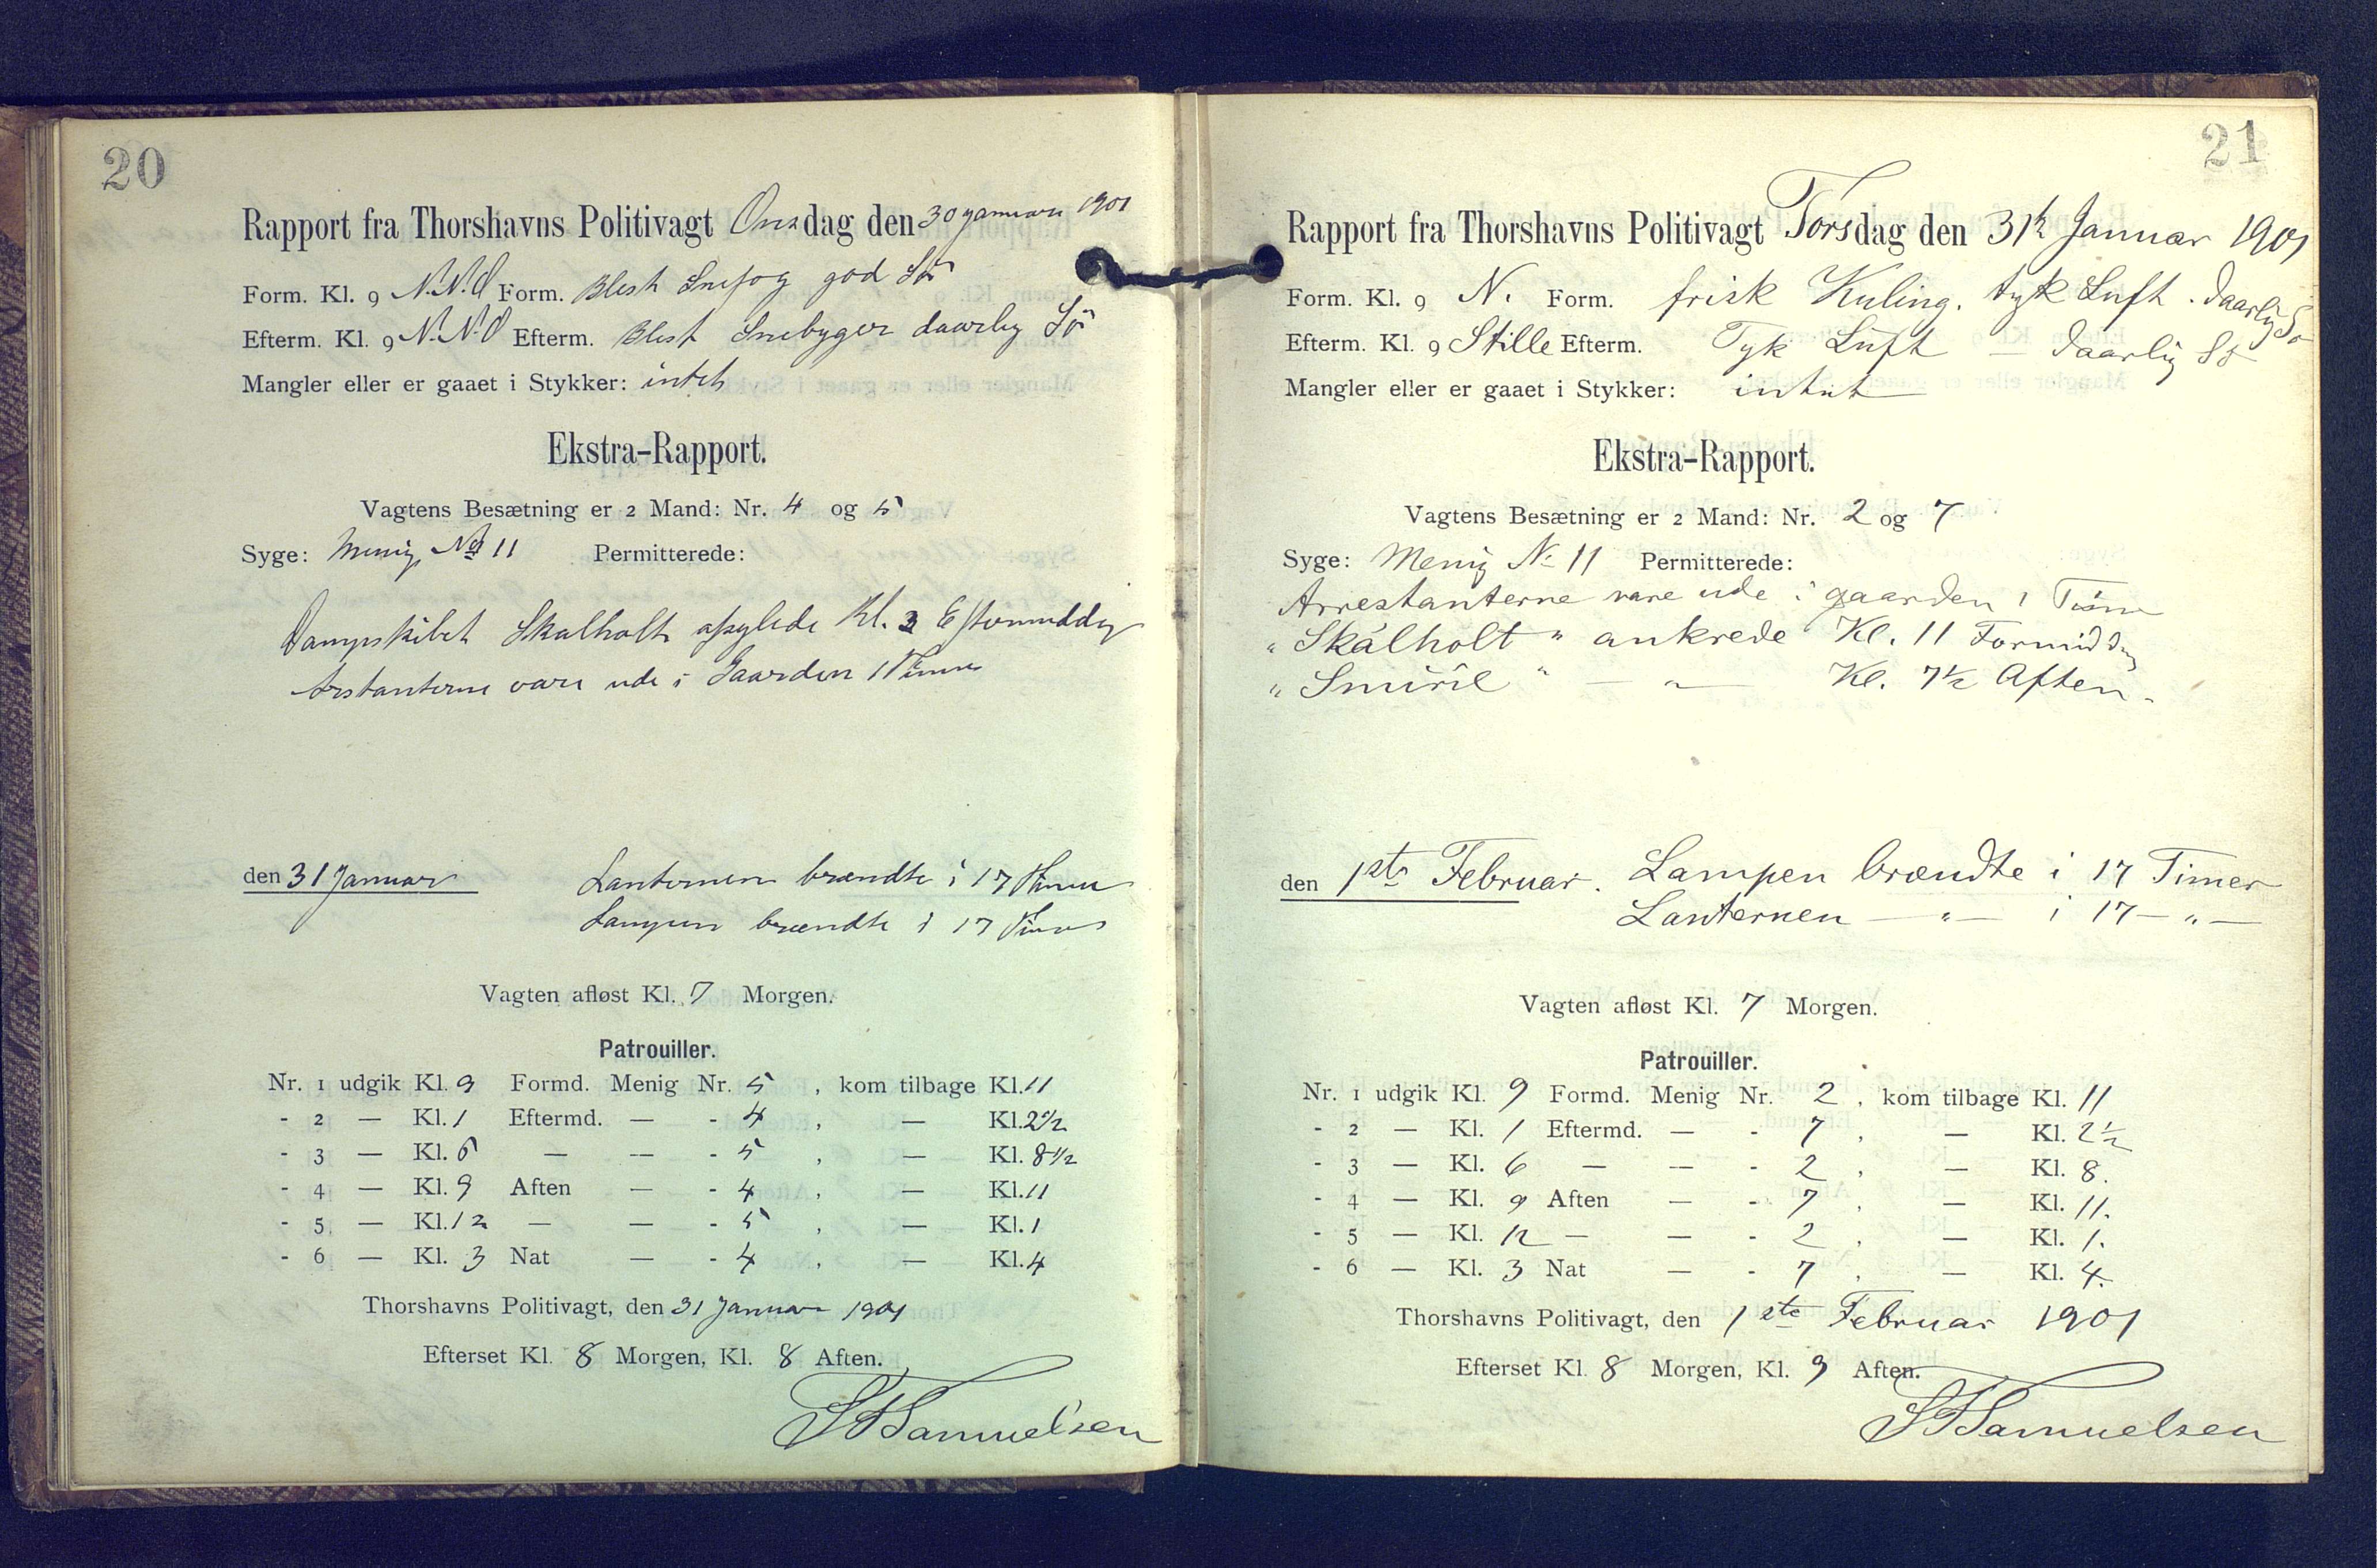 20
Rapport fra Thorshavns Politivagt Onsdag den 30 Januar 1901
Form. Kl. 9 N.N.O Form. Blest Snefog god Sö
Efterm. Kl. 9 N.N.O Efterm. Blest Snebyger daarlig Sö
Mangler eller er gaaet i Stykker: intet
Ekstra-Rapport.
Vagtens Besætning er 2 Mand: Nr. 4 og 5
Syge: Menig No 11 Permitterede:
Dampskibet Skalholt afsejlede Kl. 3 Eftermiddag
Arstanterne vare ude i Gaarden 1 Time
den 31 Januar Lanternen brændte i 17 Timer
Lampen brændte i 17 Timer
Vagten afløst Kl. 7 Morgen.
Patrouiller.
Nr. 1 udgik Kl. 9 Formd. Menig Nr. 5 , kom tilbage Kl. 11
- 2 — Kl. 1 Eftermd. — - 4 , — Kl. 2 1/2
- 3 — Kl. 6 — — - 5 , — Kl. 8 1/2
- 4 — Kl. 9 Aften — - 4 , — Kl. 11
- 5 — Kl. 12 — — - 5 , — Kl. 1
- 6 — Kl. 3 Nat — - 4 , — Kl. 4
Thorshavns Politivagt, den 31 Januar 1901
Efterset Kl. 8 Morgen, Kl. 8 Aften.
Samuelsen
21
Rapport fra Thorshavns Politivagt Torsdag den 31te Januar 1901
Form. Kl. 9 N. Form. frisk Kuling. tyk Luft. daarlig Sö
Efterm. Kl. 9 Stille Efterm. Tyk Luft — daarlig Sö
Mangler eller er gaaet i Stykker: intet
Ekstra-Rapport.
Vagtens Besætning er 2 Mand: Nr. 2 og 7
Syge: Menig No 11 Permitterede:
Arrestanterne vare ude i gaarden 1 Time
"Skálholt" ankrede Kl. 11 Formiddag
"Smiril" — " — Kl. 7 1/2 Aften.
den 1ste Februar. Lampen brændte i 17 Timer
Lanternen — " — i 17 — " —
Vagten afløst Kl. 7 Morgen.
Patrouiller.
Nr. 1 udgik Kl. 9 Formd. Menig Nr. 2 , kom tilbage Kl. 11
- 2 — Kl. 1 Eftermd. — - 7 , — Kl. 2 1/2
- 3 — Kl. 6 — — - 2 , — Kl. 8.
- 4 — Kl. 9 Aften — - 7 , — Kl. 11.
- 5 — Kl. 12 — — - 2 , — Kl. 1.
- 6 — Kl. 3 Nat — - 7 , — Kl. 4.
Thorshavns Politivagt, den 1ste Februar 1901
Efterset Kl. 8 Morgen, Kl. 9 Aften.
Samuelsen